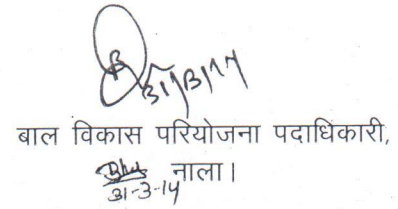 31/3/14
बाल विकास परियोजना पदाधिकारी,
नाला।
31-3-14